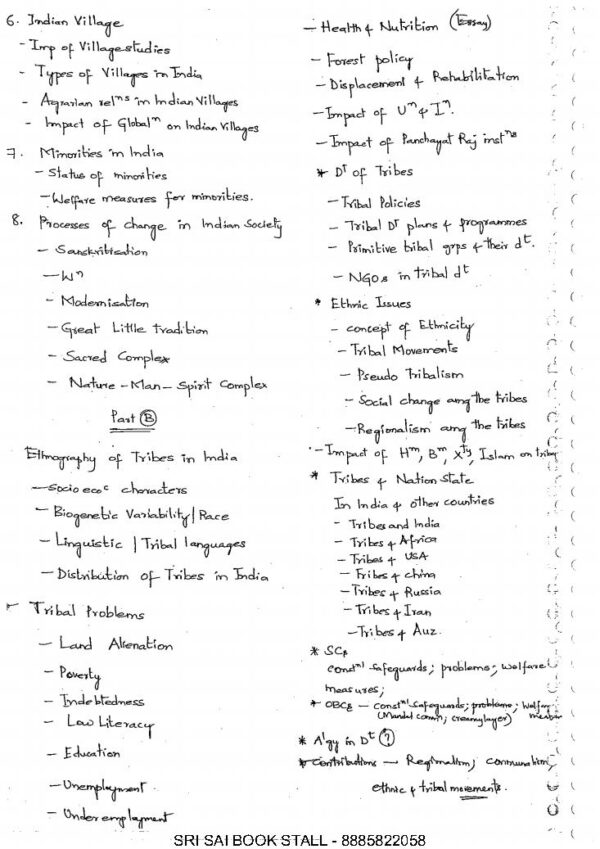 6. Indian Village
- Imp of Village studies
- Types of Villages in India
- Agrarian relns in Indian Villages
- Impact of Globaln on Indian Villages
7. Minorities in India
- Status of minorities
- Welfare measures for minorities.
8. Processes of change in Indian Society
- Sanskritisation
- Wn
- Modernisation
- Great Little tradition
- Sacred Complex
- Nature - Man - Spirit Complex
Part B
Ethnography of Tribes in India
- Socio ecoc characters
- Biogenetic Variability / Race
- Linguistic / Tribal languages
- Distribution of Tribes in India
- Tribal Problems
- Land Alienation
- Poverty
- Indebtedness
- Low Literacy
- Education
- Unemployment
- Under employment
- Health & Nutrition (Essay)
- Forest policy
- Displacement & Rehabilitation
- Impact of Un & In.
- Impact of Panchayat Raj instns
* Dt of Tribes
- Tribal Policies
- Tribal Dt plans & programmes
- Primitive tribal grps & their dt.
- NGOs in tribal dt
* Ethnic Issues
- concept of Ethnicity
- Tribal Movements
- Pseudo Tribalism
- Social change amg the tribes
- Regionalism amg the tribes
- Impact of Hm, Bm, Xty, Islam on tribes
* Tribes & Nation state
In India & other countries
- Tribes and India
- Tribes & Africa
- Tribes & USA
- Tribes & China
- Tribes & Russia
- Tribes & Iran
- Tribes & Auz.
* SCs
constnl safeguards; problems; welfare
measures;
* OBCs - constnl safeguards; problems; welfare
(Mandal comm; creamy layer)
* A'gy in Dt (?)
* Contributions - Regionalism, communalism,
ethnic & tribal movements.
SRI SAI BOOK STALL - 8885822058